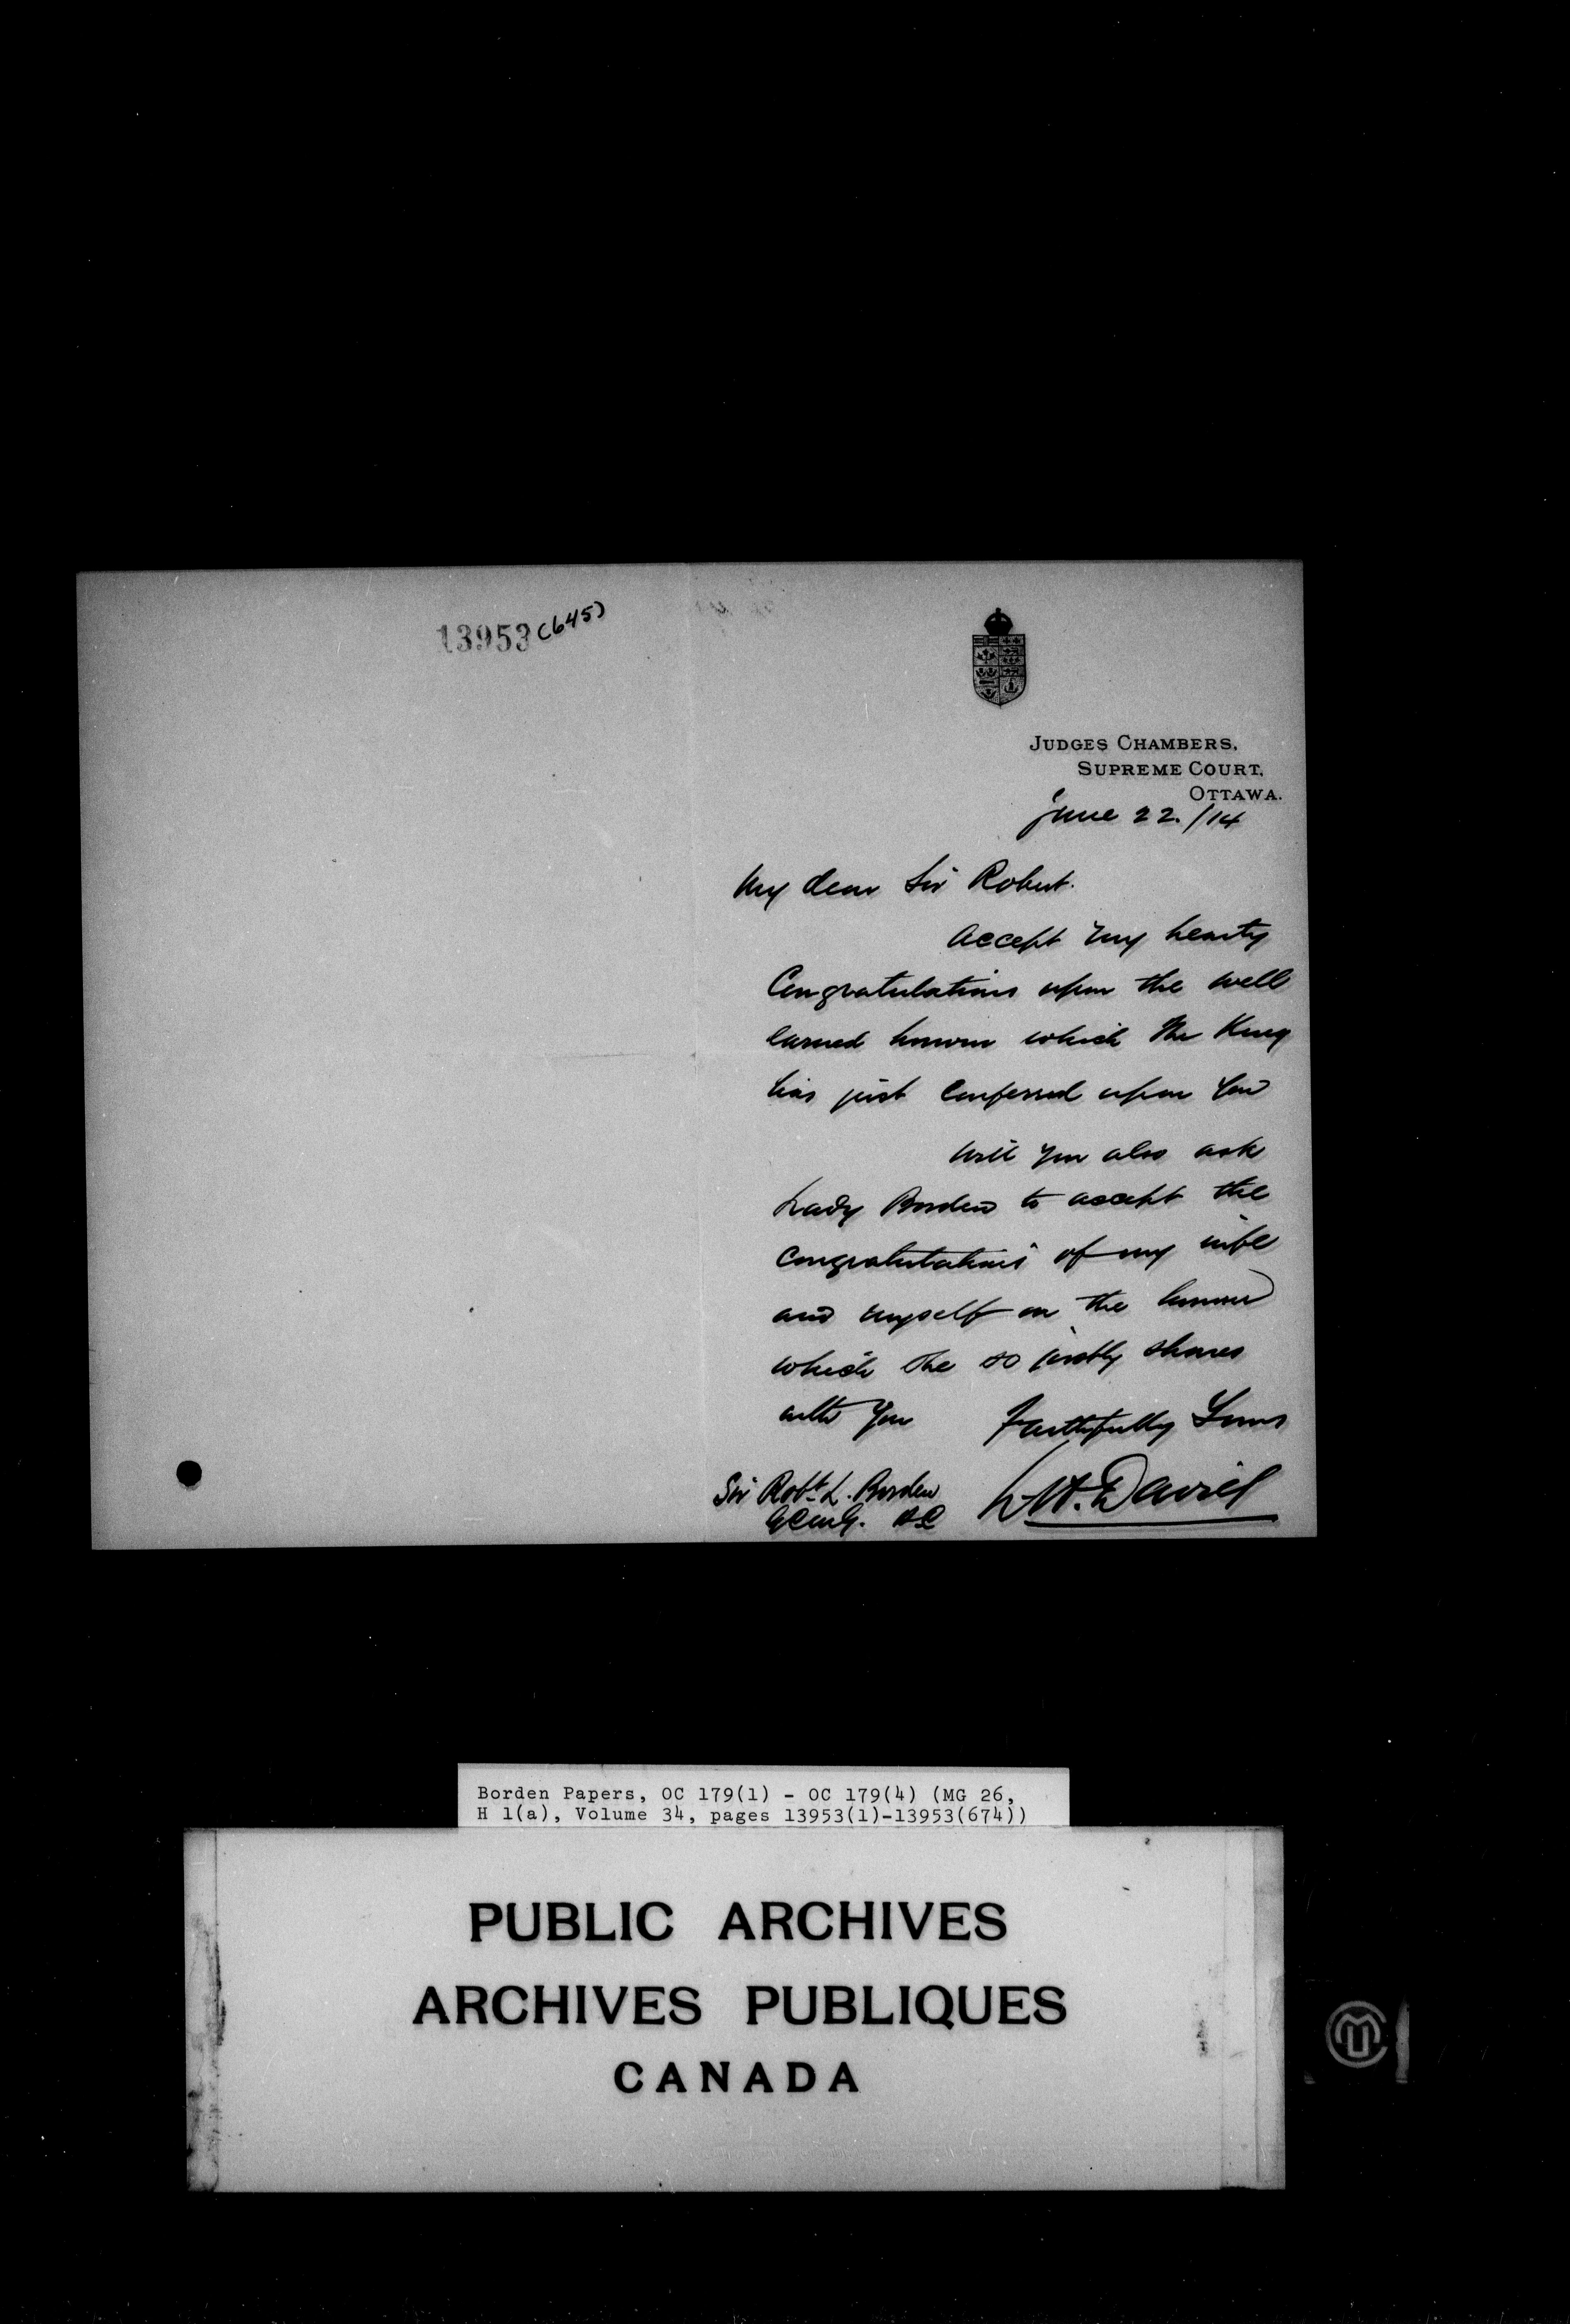 13953 (645)
JUDGES CHAMBERS,
SUPREME COURT,
OTTAWA.
June 22./14
My dear Sir Robert.
Accept my hearty
Congratulations upon the well
earned honour which the King
has just conferred upon you
Will you also ask
Lady Borden to accept the
congratulations of my wife
and myself on the honour
which she so justly shares
with you
Faithfully Yours
L H. Davies
Sir Robt. L. Borden
GCMG.
Borden Papers, OC 179(1) - OC 179(4) (MG 26,
H 1(a), Volume 34, pages 13953(1)-13953(674))
PUBLIC ARCHIVES
ARCHIVES PUBLIQUES
CANADA